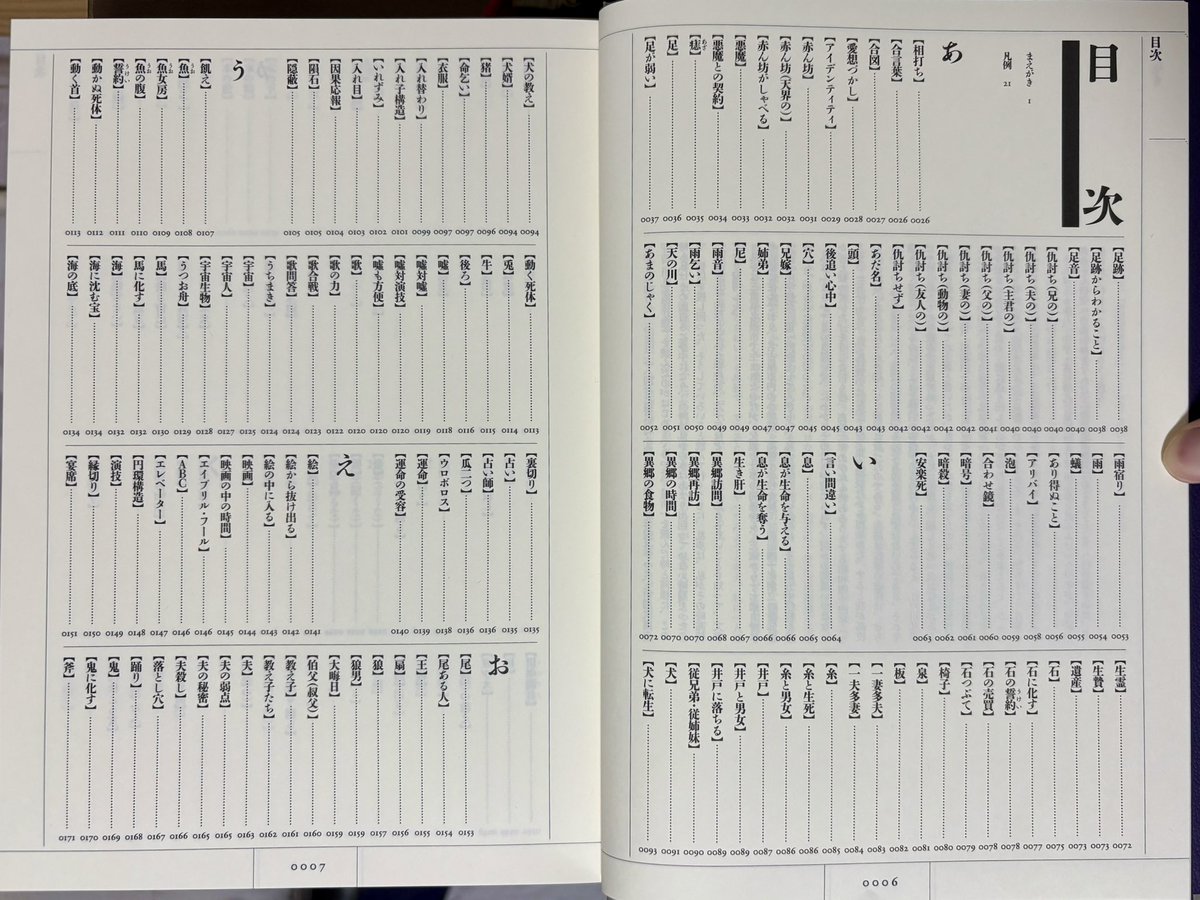 目次
目次
まえがき 1
凡例 21
あ
【相打ち】 0026
【合言葉】 0026
【合図】 0027
【愛想づかし】 0028
【アイデンティティ】 0029
【赤ん坊】 0031
【赤ん坊(天界の)】 0032
【赤ん坊がしゃべる】 0032
【悪魔】 0033
【悪魔との契約】 0034
【痣】 0035
【足】 0036
【足が弱い】 0037
【足跡】 0038
【足跡からわかること】 0038
【足音】 0040
【仇討ち(兄の)】 0040
【仇討ち(夫の)】 0040
【仇討ち(主君の)】 0040
【仇討ち(父の)】 0041
【仇討ち(妻の)】 0042
【仇討ち(動物の)】 0042
【仇討ち(友人の)】 0042
【仇討ちせず】 0042
【あだ名】 0043
【頭】 0043
【後追い心中】 0045
【穴】 0045
【兄嫁】 0047
【姉弟】 0047
【尼】 0049
【雨音】 0049
【雨乞い】 0050
【天の川】 0051
【あまのじゃく】 0052
【雨宿り】 0053
【雨】 0054
【蟻】 0055
【あり得ぬこと】 0056
【アリバイ】 0058
【泡】 0059
【合わせ鏡】 0060
【暗号】 0061
【暗殺】 0062
【安楽死】 0063
い
【言い間違い】 0064
【息】 0065
【息が生命を与える】 0066
【息が生命を奪う】 0066
【生き肝】 0067
【異郷訪問】 0068
【異郷再訪】 0070
【異郷の時間】 0070
【異郷の食物】 0072
【生霊】 0072
【生贄】 0073
【遺産】 0073
【石】 0075
【石に化す】 0077
【石の誓約】 0078
【石の売買】 0078
【石つぶて】 0079
【椅子】 0080
【泉】 0081
【板】 0082
【一妻多夫】 0083
【一夫多妻】 0084
【糸】 0085
【糸と生死】 0086
【糸と男女】 0086
【井戸】 0087
【井戸と男女】 0089
【井戸に落ちる】 0089
【従兄弟・従姉妹】 0090
【犬】 0091
【犬に転生】 0093
0006
【犬の教え】 0094
【犬婿】 0094
【猪】 0096
【命乞い】 0097
【衣服】 0097
【入れ替わり】 0099
【入れ子構造】 0101
【いれずみ】 0102
【入れ目】 0103
【因果応報】 0104
【隕石】 0105
【隠蔽】 0105
う
【飢え】 0107
【魚】 0108
【魚女房】 0109
【魚の腹】 0110
【誓約】 0111
【動かぬ死体】 0112
【動く首】 0113
【動く死体】 0113
【兎】 0114
【牛】 0115
【後ろ】 0116
【嘘】 0118
【嘘対嘘】 0119
【嘘対演技】 0120
【嘘も方便】 0120
【歌】 0120
【歌の力】 0122
【歌合戦】 0123
【歌問答】 0124
【うちまき】 0124
【宇宙】 0125
【宇宙人】 0127
【宇宙生物】 0128
【うつお舟】 0129
【馬】 0130
【馬に化す】 0132
【海】 0132
【海に沈む宝】 0134
【海の底】 0134
【裏切り】 0135
【占い】 0135
【占い師】 0136
【瓜二つ】 0136
【ウロボロス】 0138
【運命】 0139
【運命の受容】 0140
え
【絵】 0141
【絵から抜け出る】 0142
【絵の中に入る】 0143
【映画】 0144
【映画の中の時間】 0145
【エイプリル・フール】 0146
【ABC】 0146
【エレベーター】 0147
【円環構造】 0148
【演技】 0149
【縁切り】 0150
【宴席】 0151
お
【尾】 0153
【尾ある人】 0154
【王】 0155
【扇】 0156
【狼】 0157
【狼男】 0159
【大晦日】 0159
【伯父(叔父)】 0160
【教え子】 0161
【教え子たち】 0162
【夫】 0163
【夫の弱点】 0165
【夫の秘密】 0165
【夫殺し】 0166
【落とし穴】 0167
【踊り】 0168
【鬼】 0169
【鬼に化す】 0170
【斧】 0171
0007